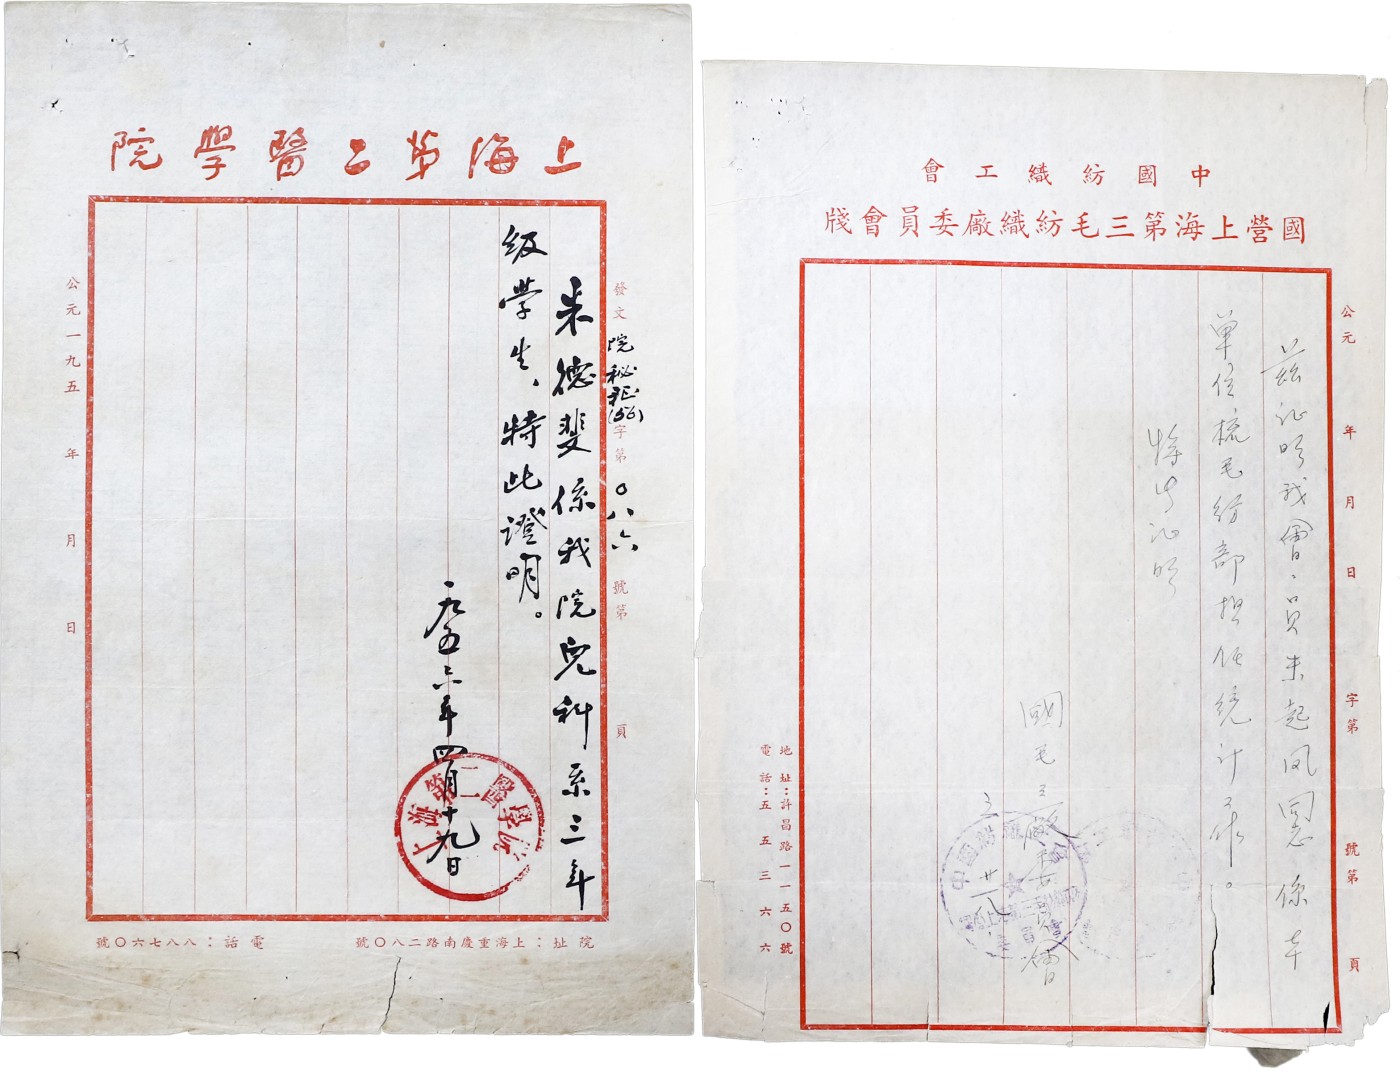 上海第二醫學院
發文院秘証(56)字第〇八六號第 頁
朱德斐係我院兒科系三年
級学生、特此證明。
一九五六年四月十九日
上海第二醫學院
公元一九五 年 月 日
院址：上海重慶南路二八〇號
電話：八八七六〇號
中國紡織工會
國營上海第三毛紡織廠委員會牋
公元 年 月 日 字第 號第 頁
茲证明我會會員朱起凤同志係本
單位梳毛纺部担任统计工作。
特此证明
國毛三廠委員會
三 廿八
地址：許昌路一一五〇號
電話：五五三六六